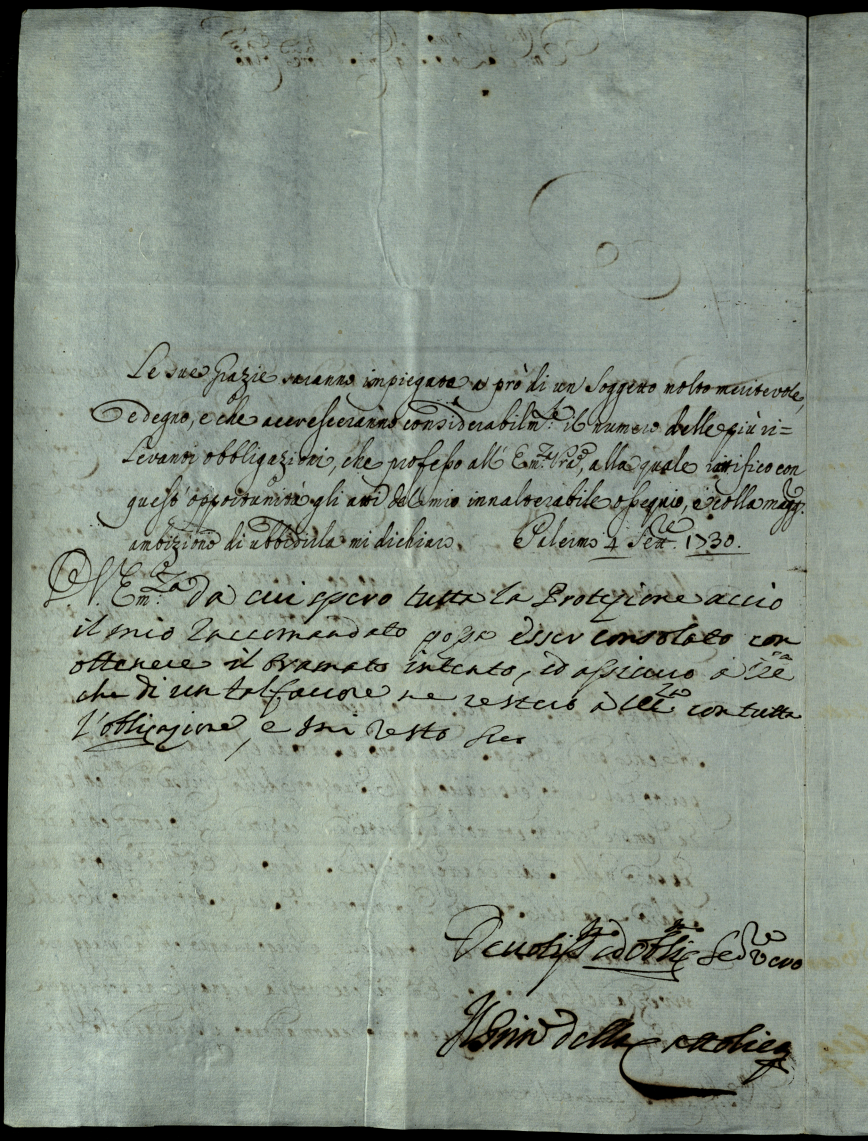 Le sue Grazie saranno impiegate a prò di un Soggetto molto meritevole,
e degno, e che accresceranno considerabilm.te il numero delle più ri=
levanti obbligazioni, che professo all' Em.za Vra, alla quale ratifico con
quest' opportunità gli atti del mio inalterabile ossequio, e colla magg.re
ambizione di ubbidirla mi dichiaro. Palermo 4 Sett.re 1730.
V. Em.za da cui spero tutta la Protezione acciò
il mio raccomandato possa esser consolato con
ottenere il bramato intento, ed assicuro a
che di un tal favore ne resterò a con tutta
l'obligazione, e mi resto
Devotiss.mo ed Oblig.mo Ser.re vero
Il Prin.e della Cattolica